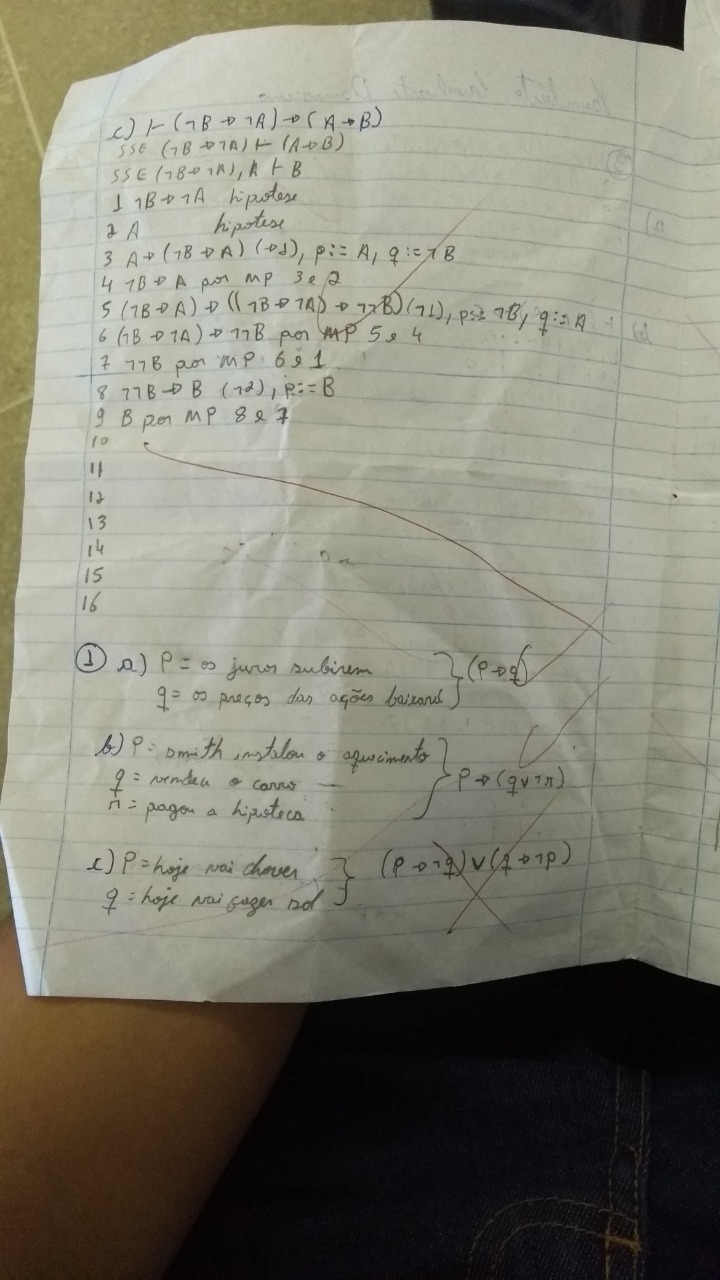 c) ⊢ (¬B→¬A)→(A→B)
SSE (¬B→¬A) ⊢ (A→B)
SSE (¬B→¬A), A ⊢ B
1 ¬B→¬A hipotese
2 A hipotese
3 A→(¬B→A) (→1), p:= A, q:=¬B
4 ¬B→A por MP 3 e 2
5 (¬B→A)→((¬B→¬A)→¬¬B) (¬1), p:= ¬B, q:= A
6 (¬B→¬A)→¬¬B por MP 5 e 4
7 ¬¬B por MP 6 e 1
8 ¬¬B→B (¬2), p:= B
9 B por MP 8 e 7
10
11
12
13
14
15
16
① a) P = os juros subirem } (P→q)
q = os preços das ações baixará
b) P = smith instalou o aquecimento } P→(q∨¬r)
q = vendeu o carro
r = pagou a hipoteca
c) P = hoje vai chover } (p→¬q)∨(q→¬p)
q = hoje vai fazer sol